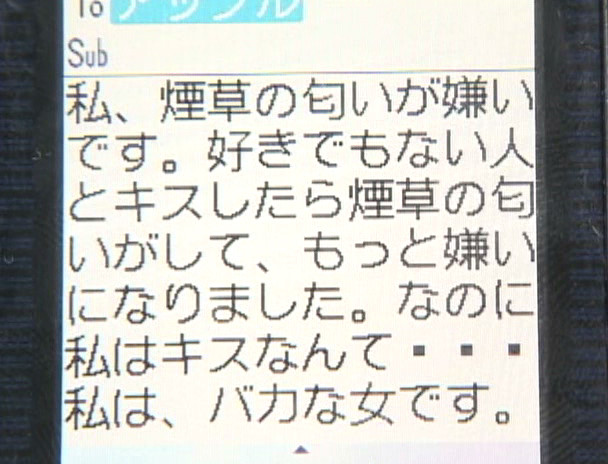 To アップル
Sub
私、煙草の匂いが嫌い
です。好きでもない人
とキスしたら煙草の匂
いがして、もっと嫌い
になりました。なのに
私はキスなんて・・・
私は、バカな女です。